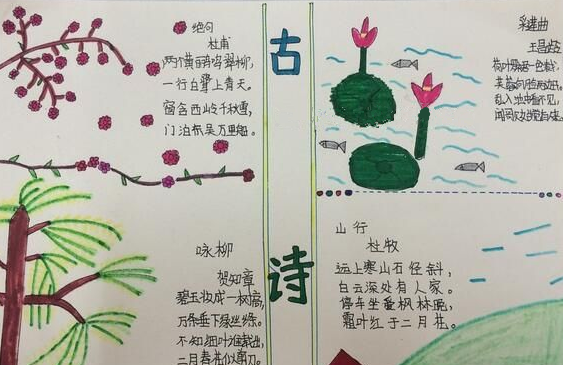 绝句
杜甫
两个黄鹂鸣翠柳,
一行白鹭上青天。
窗含西岭千秋雪,
门泊东吴万里船。
古
诗
采莲曲
王昌龄
荷叶罗裙一色裁,
芙蓉向脸两边开。
乱入池中看不见,
咏柳
贺知章
碧玉妆成一树高,
万条垂下绿丝绦。
不知细叶谁裁出,
二月春花似剪刀。
山行
杜牧
远上寒山石径斜,
白云深处有人家。
停车坐爱枫林晚,
霜叶红于二月花。